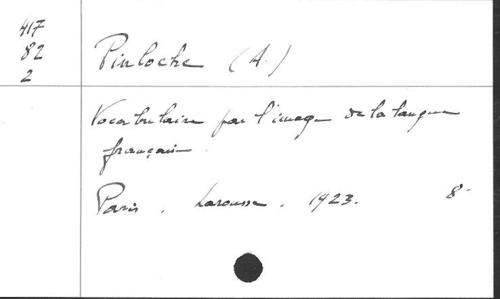 417
82
2
Pinloche (A.)
Vocabulaire par l'image de la langue
française.
Paris, Larousse, 1923. 8°